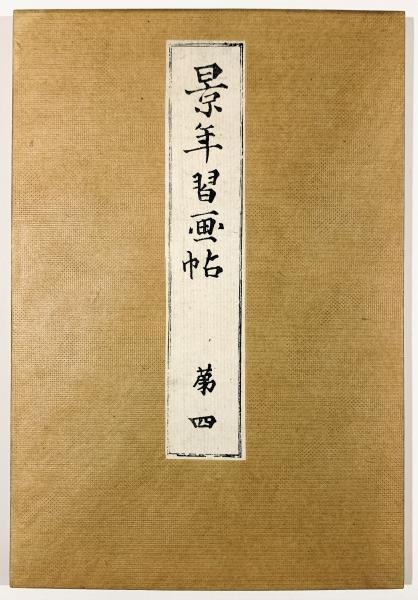 景年習画帖 第四